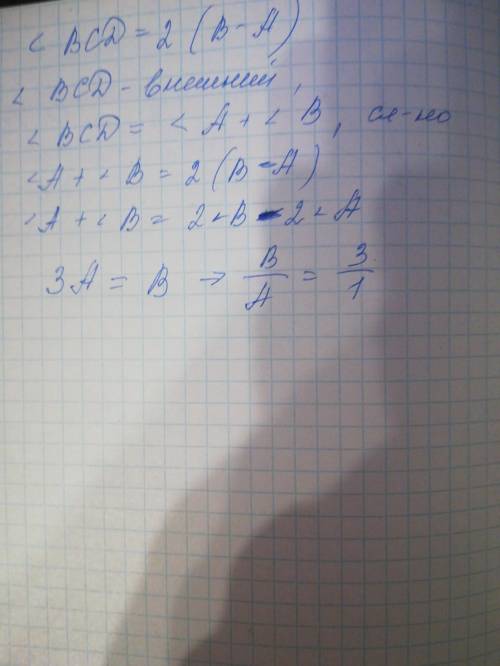 < BCD = 2 (B - A)
< BCD - внешний,
< BCD = < A + < B, сл-но
< A + < B = 2 (B - A)
< A + < B = 2 < B - 2 < A
3A = B → B/A = 3/1